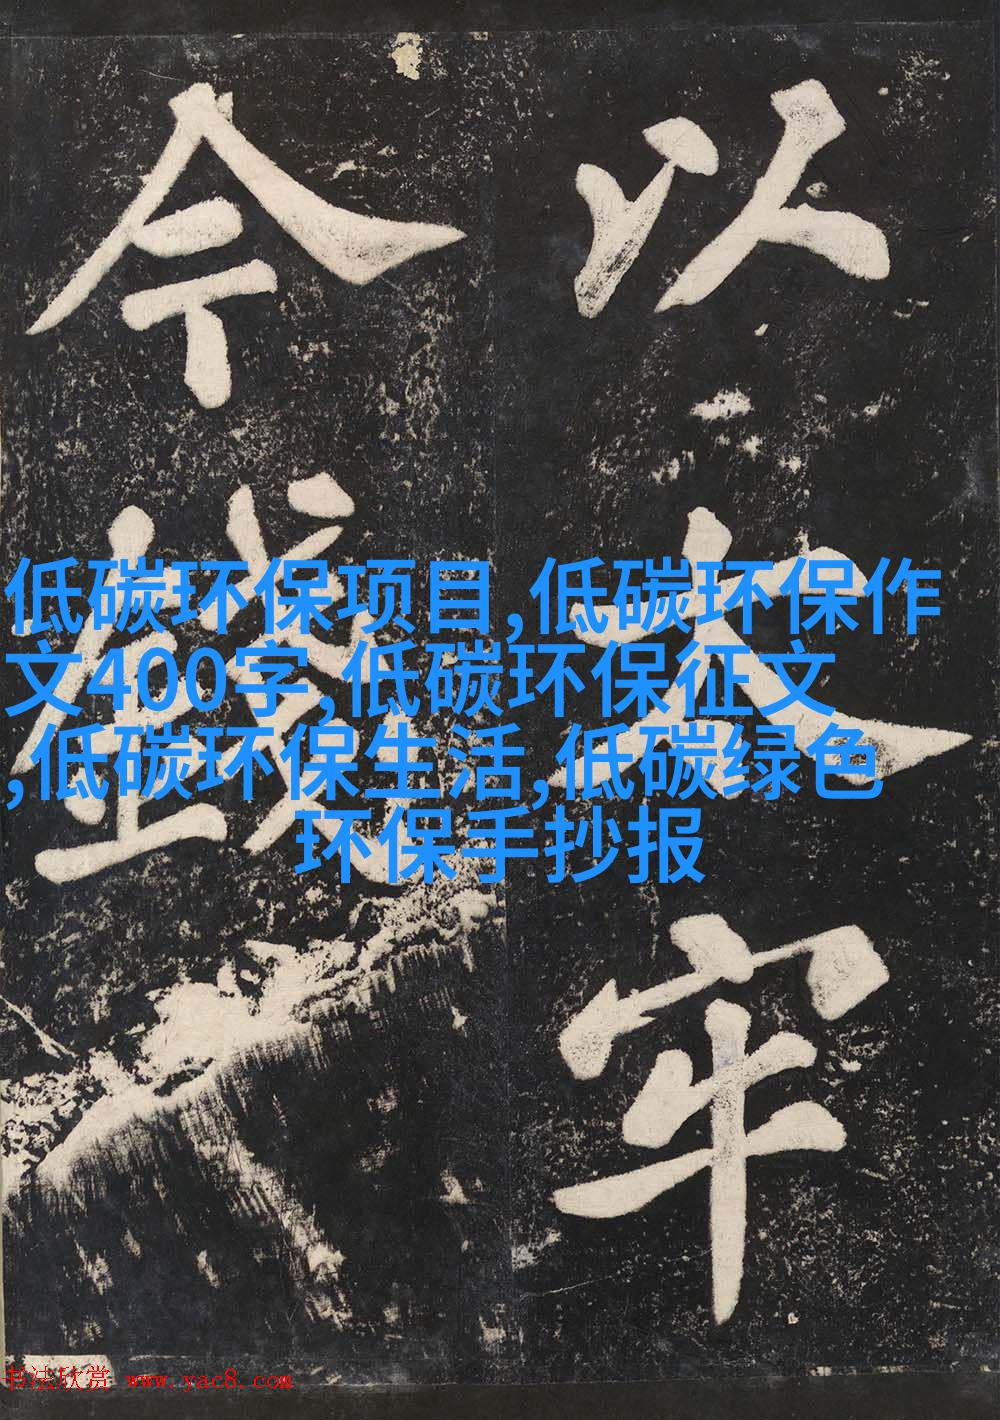 以
牢
今
低碳环保项目,低碳环保作
文400字,低碳环保征文
,低碳环保生活,低碳绿色
环保手抄报
书法欣赏 www.yac8.com